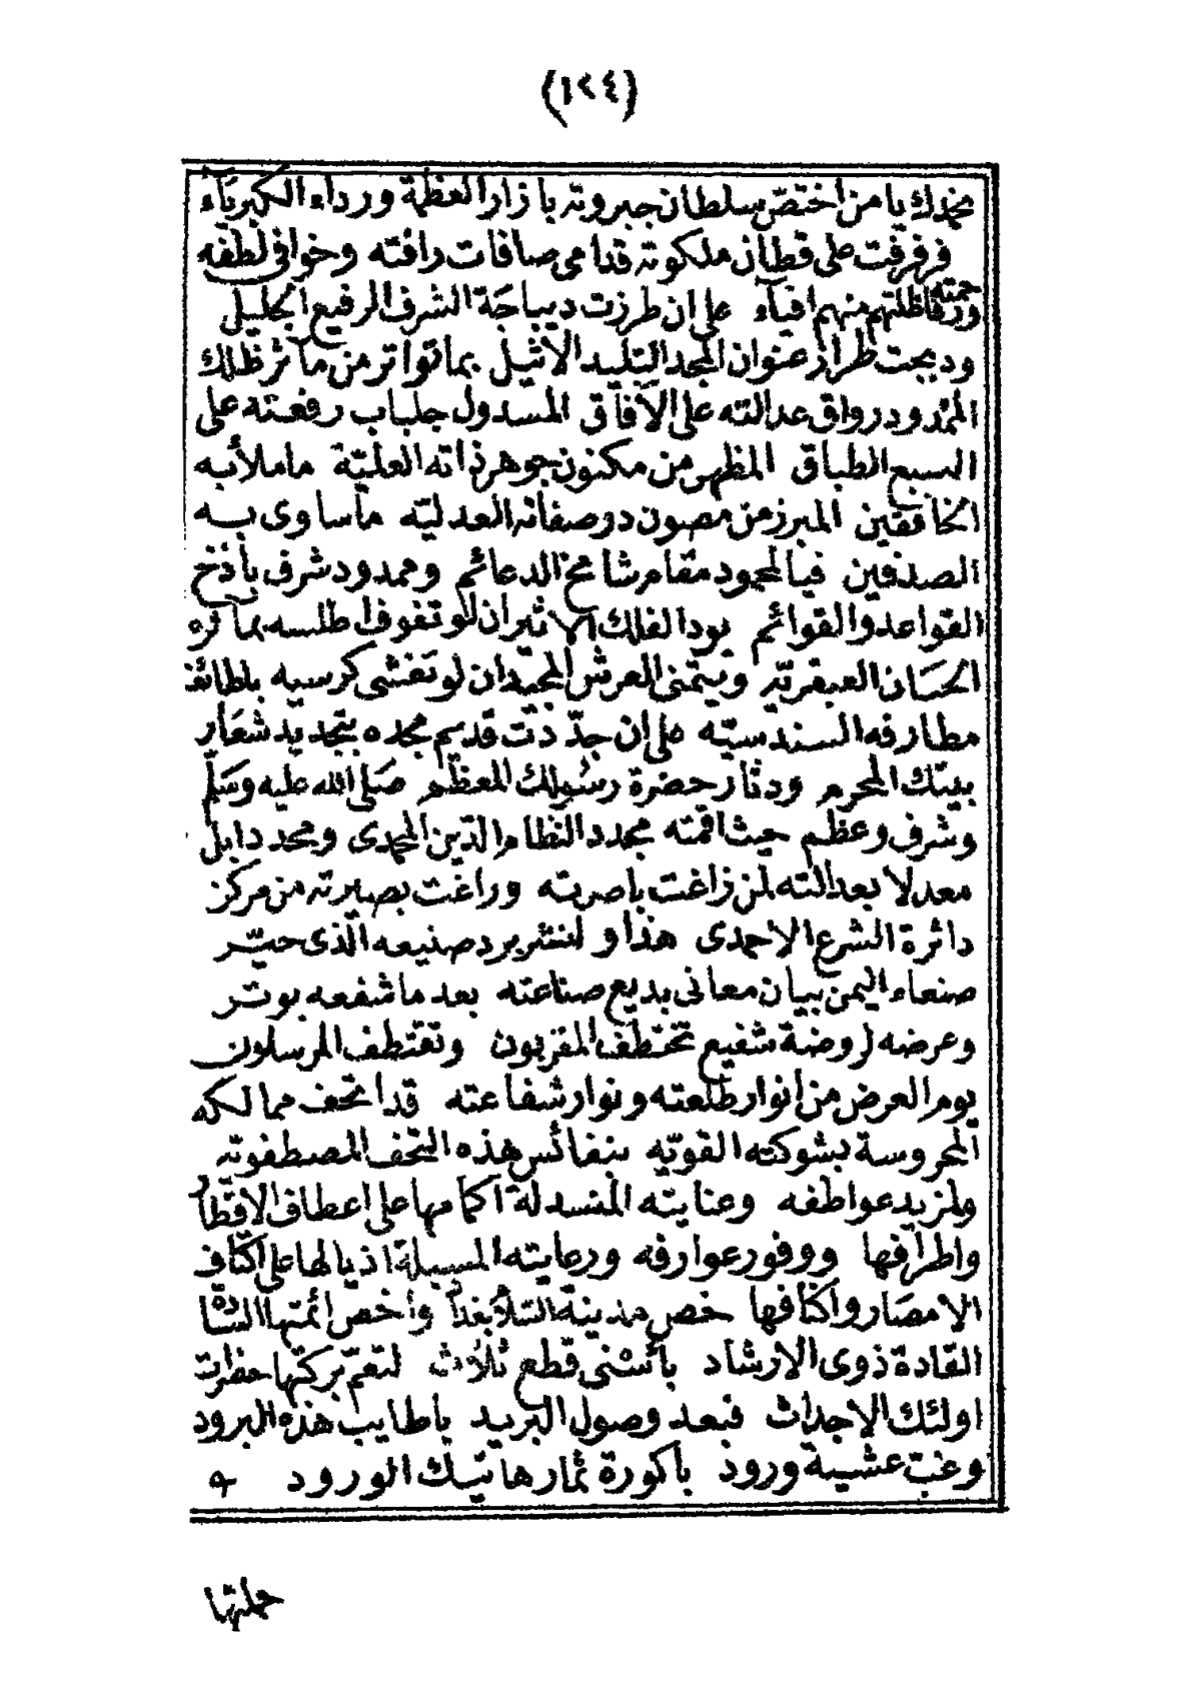 (١٢٤)
نحمدك يا من اختص سلطان جبروته بازار العظمة ورداء الكبرياء
فرفرفت على قطان ملكوته قدامى صافات رافته وخوافى لطفه
ورحمته فاظلتهم منهم افياء على ان طرزت ديباجة الشرف الرفيع الجليلى
ودبجت طراز عنوان المجد التليد الاثيل بما تواتر من مآثر ظلك
الممدود رواق عدالته على الآفاق المسدول جلباب رفعته على
السبع الطباق المظهر من مكنون جوهر ذاته العليّة ما ملأ به
الخافقين المبرز من مصون در صفاته العدليّه ما ساوى به
الصدفين فيالمحمود مقام شامخ الدعائم وممدود شرف باذخ
القواعد والقوائم يود الفلك الاثير ان لو تفوف اطلسه بمآثره
الحسان العبقريّه ويتمنى العرش المجيد ان لو تغشى كرسيه بلطائف
مطارفه السندسيّه على ان جدّدت قديم مجده بتجديد شعار
بيتك المحرم ودثار حضرة رسولك المعظم صلى الله عليه وسلم
وشرف وعظم حيث اقمته مجدد النظام الدين المحمدى ومحددا بل
معدلا بعدالته لمن زاغت باصرته وراغت بصيرته من مركز
دائرة الشرع الاحمدى هذا ولننشر برد صنيعه الذى حيّر
صنعاء اليمن ببيان معانى بديع صناعته بعد ما شفعه بوتر
وعرضه لروضة شفيع تختطف المقربون وتقتطف المرسلون
يوم العرض من انوار طلعته ونوار شفاعته قد اتحف ممالكه
المحروسة بشوكته القويّه بنفائس هذه التحف المصطفويّه
ولمزيد عواطفه وعنايته المنسدلة اكمامها على اعطاف الاقطار
واطرافها ووفور عوارفه ورعايته المسبلة اذيالها على اكتاف
الامصار واكنافها خص مدينة السلام بغداد واخص ائمتها السادة
القادة ذوى الارشاد باسنى قطع ثلاث لتعم بركتها حضرات
اولئك الاجداث فبعد وصول البريد باطايب هذه البرود
وغب عشية ورود باكورة ثمار هاتيك الورود
حملتها